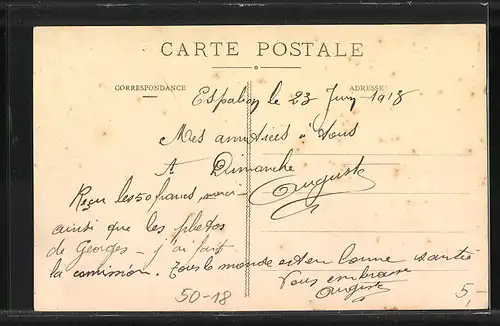 CARTE POSTALE
CORRESPONDANCE
ADRESSE
Espalion le 23 Juin 1918
Mes amitiés à tous
A Dimanche
Auguste
Reçu les 50 francs, merci
ainsi que les photos
de Georges - j'ai fait
la commission. Tous le monde est en bonne santée
Vous embrasse
Auguste
50-18
5,-